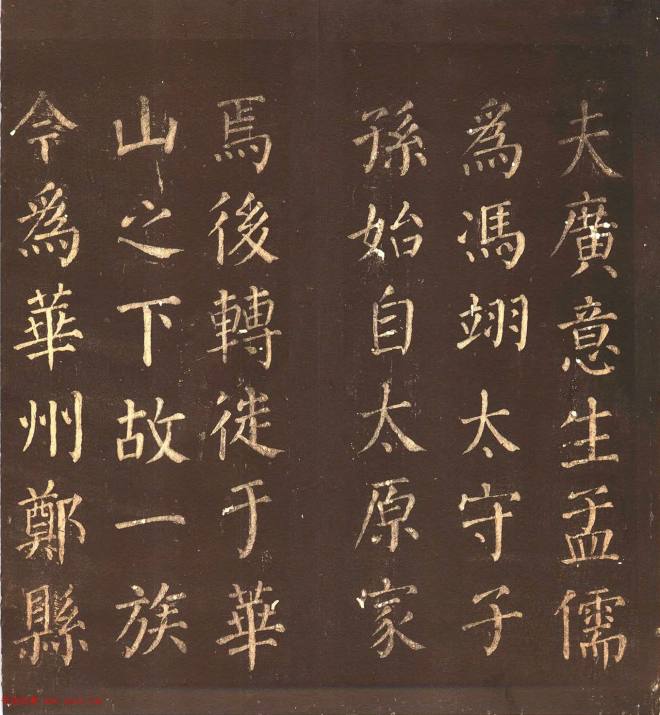 夫廣意生孟儒
爲馮翊太守子
孫始自太原家
焉後轉徙于華
山之下故一族
今爲華州鄭縣